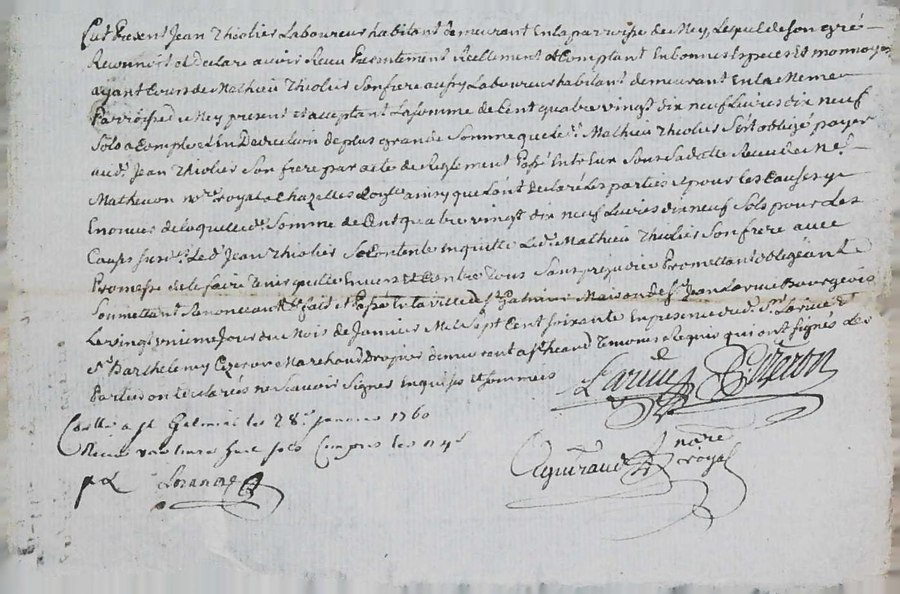 Fut Present Jean Thiolier Laboureur habitant demeurant En la parroisse de Ney, Lequel de son gré
Reconnoit et declare avoir Receu Presentement Réellement et Comptant En bonnes Especes et monnoyes
ayant Cours de Mathieu Thiolier Son frere aussy Laboureur habitant demeurant En la Meme
Parroisse de Ney present et acceptant La somme de Cent quatre vingt dix neuf Livres dix neuf
Sols a Compte et En Deduction de plus grande Somme que led. Mathieu Thiolier S'est obligé payer
aud. Jean Thiolier Son frere par acte de Reglement Passé Entr'Eux Sous Sa datte Receu de Me
Mathevon nre royal a Chazelles ainsy que l'ont declaré Les parties et pour les Causes y
Enoncées de laquelle d. Somme de Cent quatre vingt dix neuf Livres dix neuf Sols pour Les
Causes led. Jean Thiolier Se Contente En quitte Led. Mathieu Thiolier Son frere avec
Promesse de le faire tenir quitte Envers et Contre tous Sans prejudice Promettant obligeant
Soumettant Renonceant &c fait et Passé En la ville de St Galmier Maison de Sr Jean Larive Bourgeois
Le vingt unieme Jour du Mois de Janvier Mil Sept Cent Soixante En presence dud. Sr Larive et
Sr Barthelemy Cizeron Marchand Drapier demeurant a St heand Temoins Requis qui ont Signés Les
Parties ont declarées ne Scavoir Signer Enquises et Sommées
Larive B. Cizeron
Collé a St Galmier les 28e janvier 1760
Receu une livre huit sols Compris les n 4s
Aguiraud nore
royal